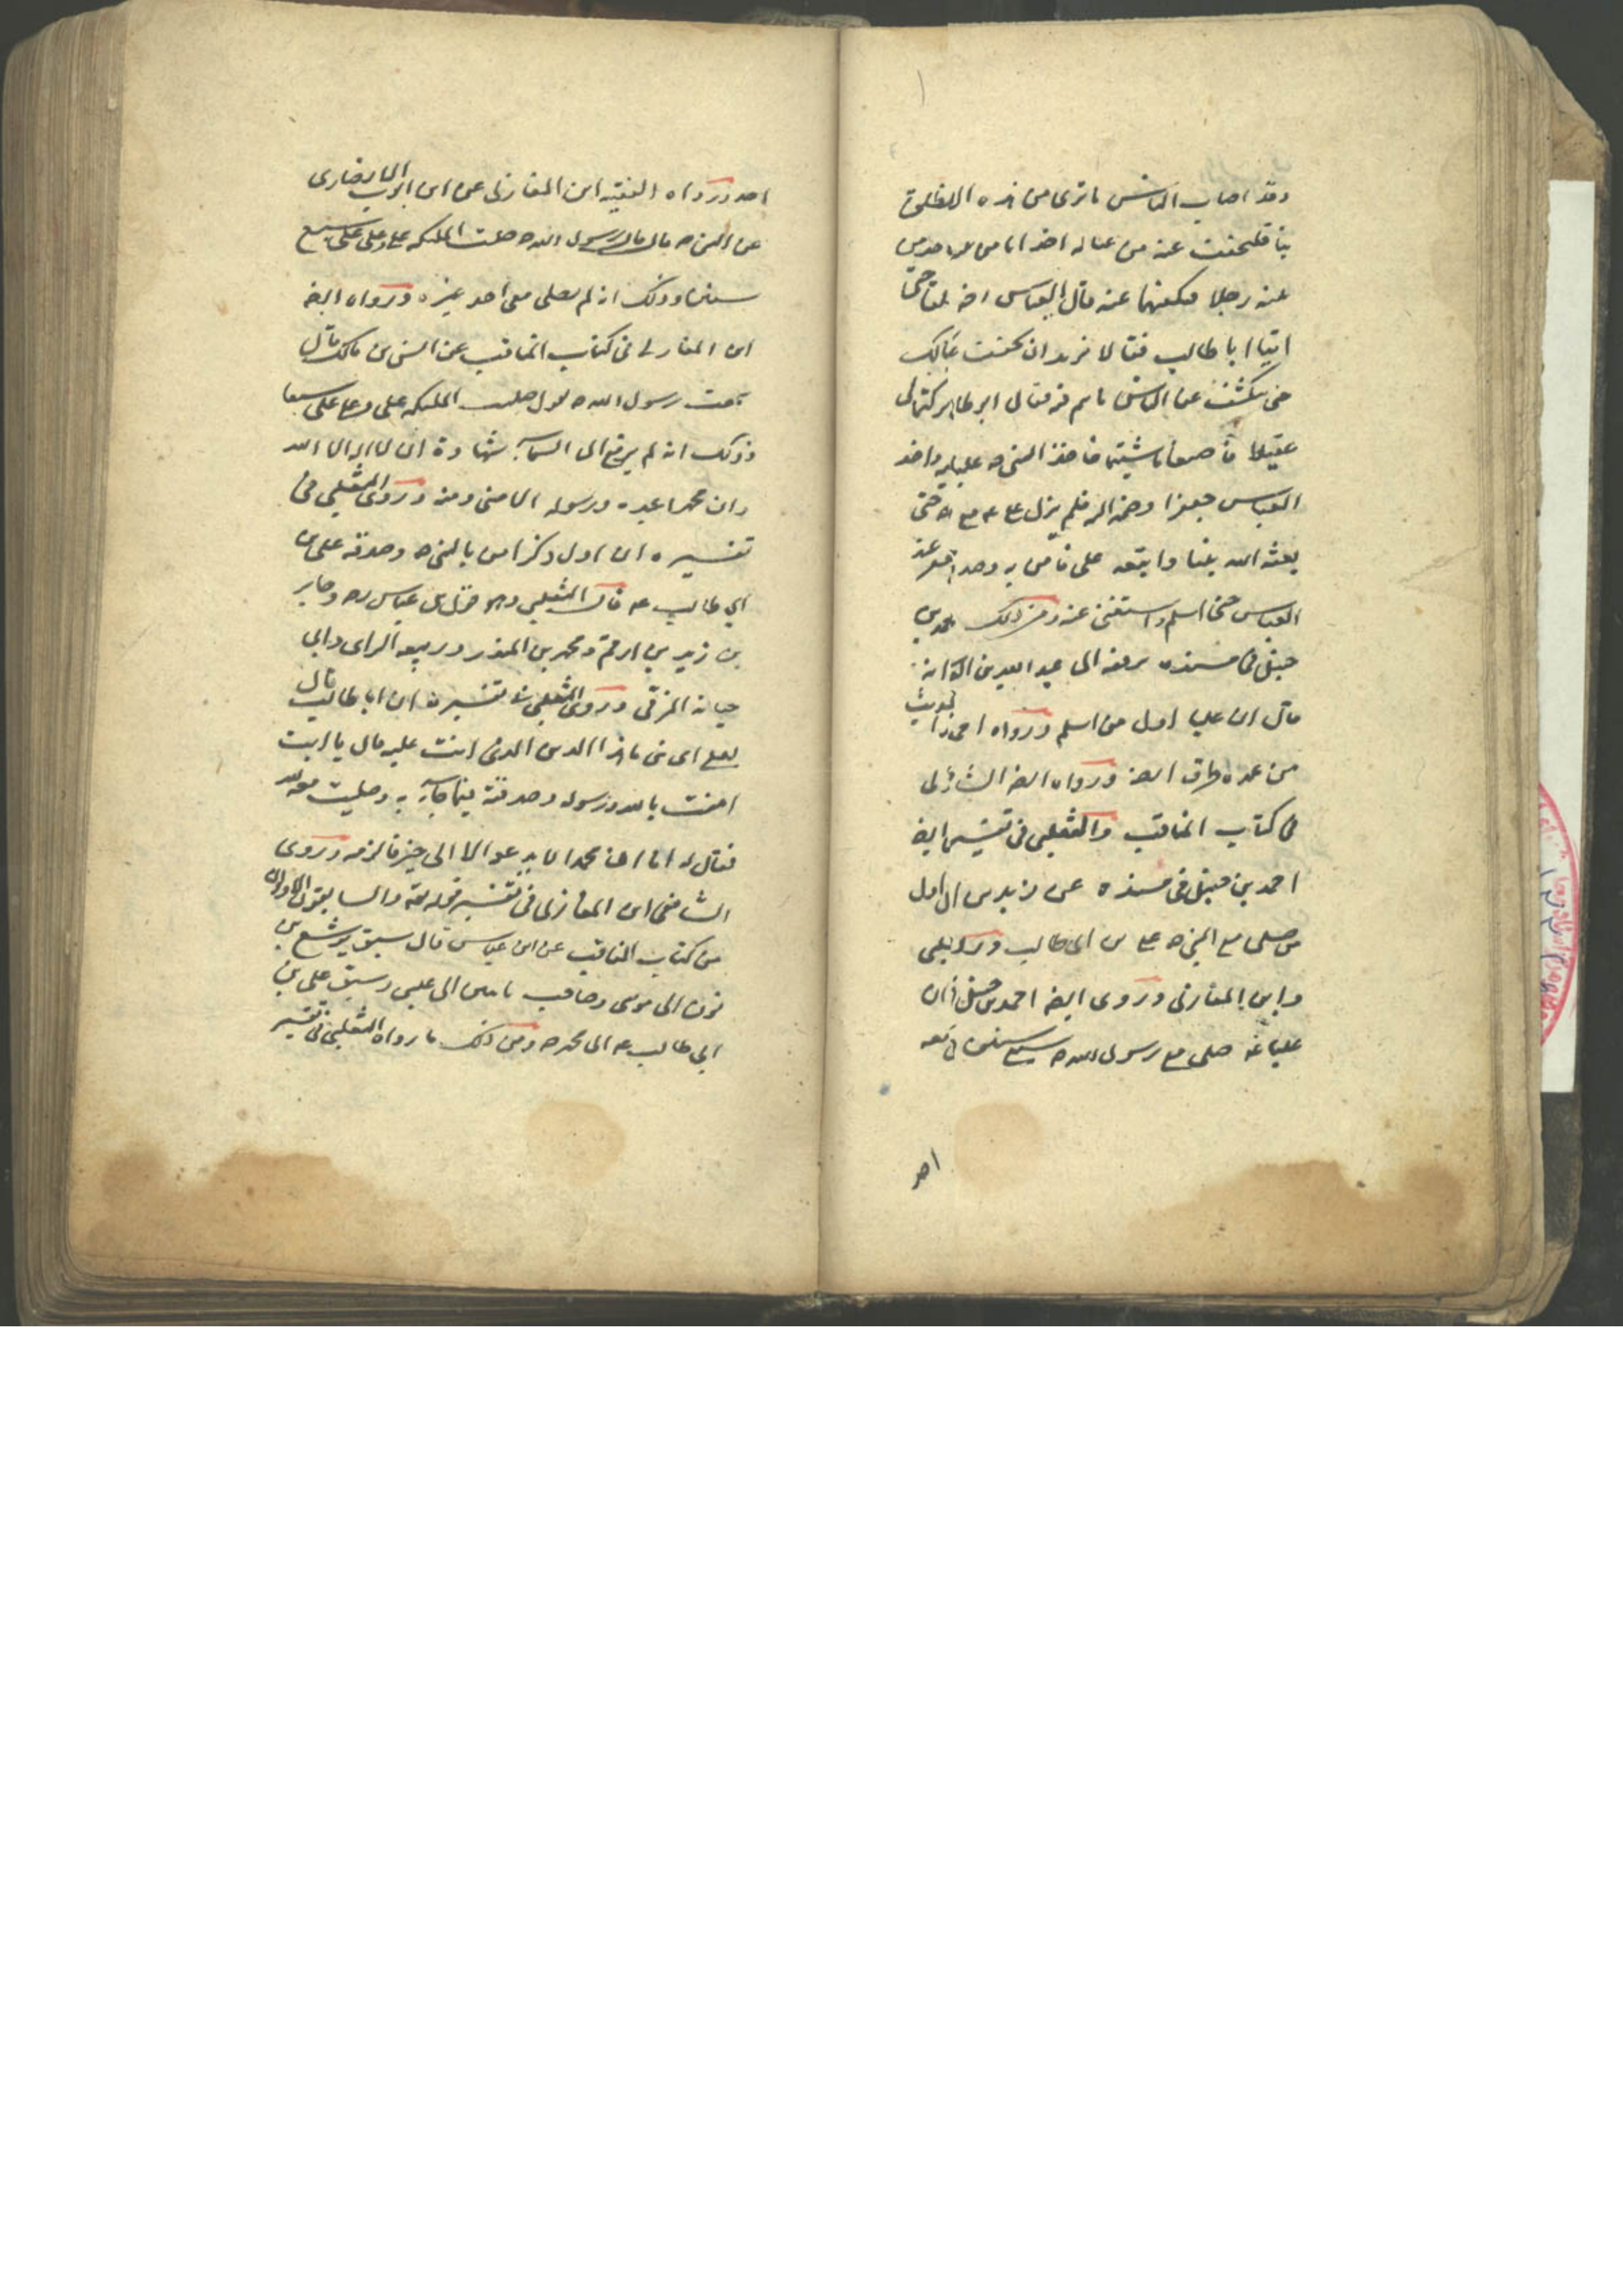 وقد اصاب الناس ما ترى من هذه
بنا فلنخفف عنه من عياله اخذ انا من
عنه رجلا فنكفهما عنه قال العباس
اتيا ابا طالب فقالا نريد ان نخفف عنك
حتى ينكشف عن الناس ما هم فيه فقال ابو طالب
عقيلا فاصنعا ما شئتما فاخذ النبى ص عليا واخذ
العباس جعفرا وضمه اليه فلم يزل على ع مع حتى
بعثه الله نبيا واتبعه على فامن به وصدقه
العباس حتى اسلم واستغنى عنه ومن ذلك
حنبل فى مسنده يرفعه الى عبد الله بن
قال ان عليا اول من اسلم ورواه
من عدة طرق ايضا ورواه ايضا
فى كتاب المناقب والثعلبى فى تفسير ايضا
احمد بن حنبل فى مسنده عن زيد بن ان اول
من صلى مع النبى ص على بن ابى طالب
وابن المغازلى وروى ايضا احمد بن حنبل ان
عليا صلى مع رسول الله ص سبع سنين
احد
احد ورواه الفقيه ابن المغازلى عن ابى ايوب الانصارى
عن النبى ص قال قال رسول الله ص صلت الملئكه على وعلى على سبع
سنين وذلك انه لم يصلى معى احد غيره ورواه ايضا
ابن المغازلى فى كتاب المناقب عن انس بن مالك قال
سمعت رسول الله ص يقول صلت الملئكه على وعلى على سبعا
وذلك انه لم يرفع الى السماء شهادة ان لا اله الا الله
وان محمدا عبده ورسوله الا منى ومنه وروى الثعلبى فى
تفسيره ان اول ذكر امن بالنبى ص وصدقه على بن
ابى طالب ع قال الثعلبى وهو قول ابن عباس وجابر
بن زيد بن ارقم ومحمد بن المنذر وربيعه الراى وابى
حيان المزنى وروى الثعلبى فى تفسيره ان ابا طالب قال
لعلى اى بنى ما هذا الدين الذى انت عليه قال يا ابت
امنت بالله ورسوله وصدقته فيما جاء به وصليت معه لله
فقال له اما ان محمدا لا يدعو الا الى خير فالزمه وروى
الشافعى ابن المغازلى فى تفسير قوله تعالى والسابقون الاولون
من كتاب المناقب عن ابن عباس قال سبق يوشع بن
نون الى موسى وصاحب ياسين الى عيسى وسبق على بن
ابى طالب ع الى محمد ص ومن ذلك ما رواه الثعلبى فى تفسير